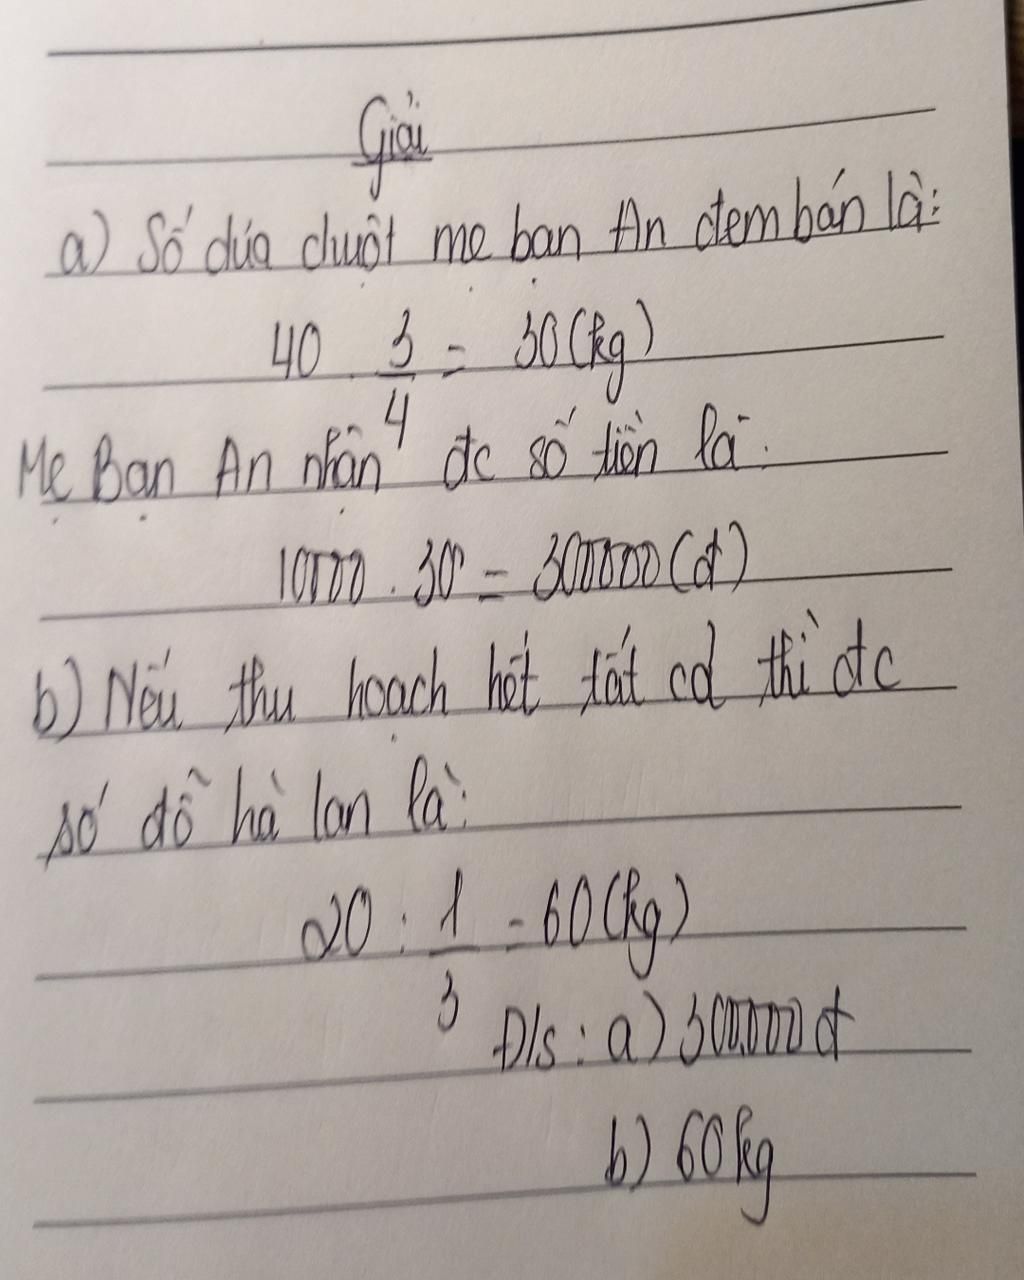 Giải
a) Số dưa chuột mẹ bạn An đem bán là:
40 . 3/4 = 30 (kg)
Mẹ Bạn An nhận đc số tiền là:
10000 . 30 = 300000 (đ)
b) Nếu thu hoạch hết tất cả thì đc
số đỗ hà lan là:
20 : 1/3 = 60 (kg)
Đ/s : a) 300.000 đ
b) 60 kg